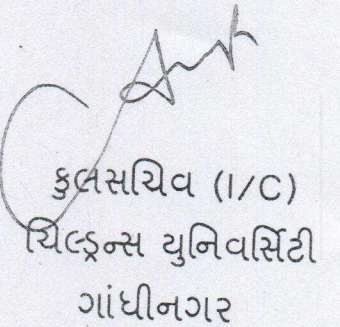 કુલસચિવ (I/C)
ચિલ્ડ્રન્સ યુનિવર્સિટી
ગાંધીનગર